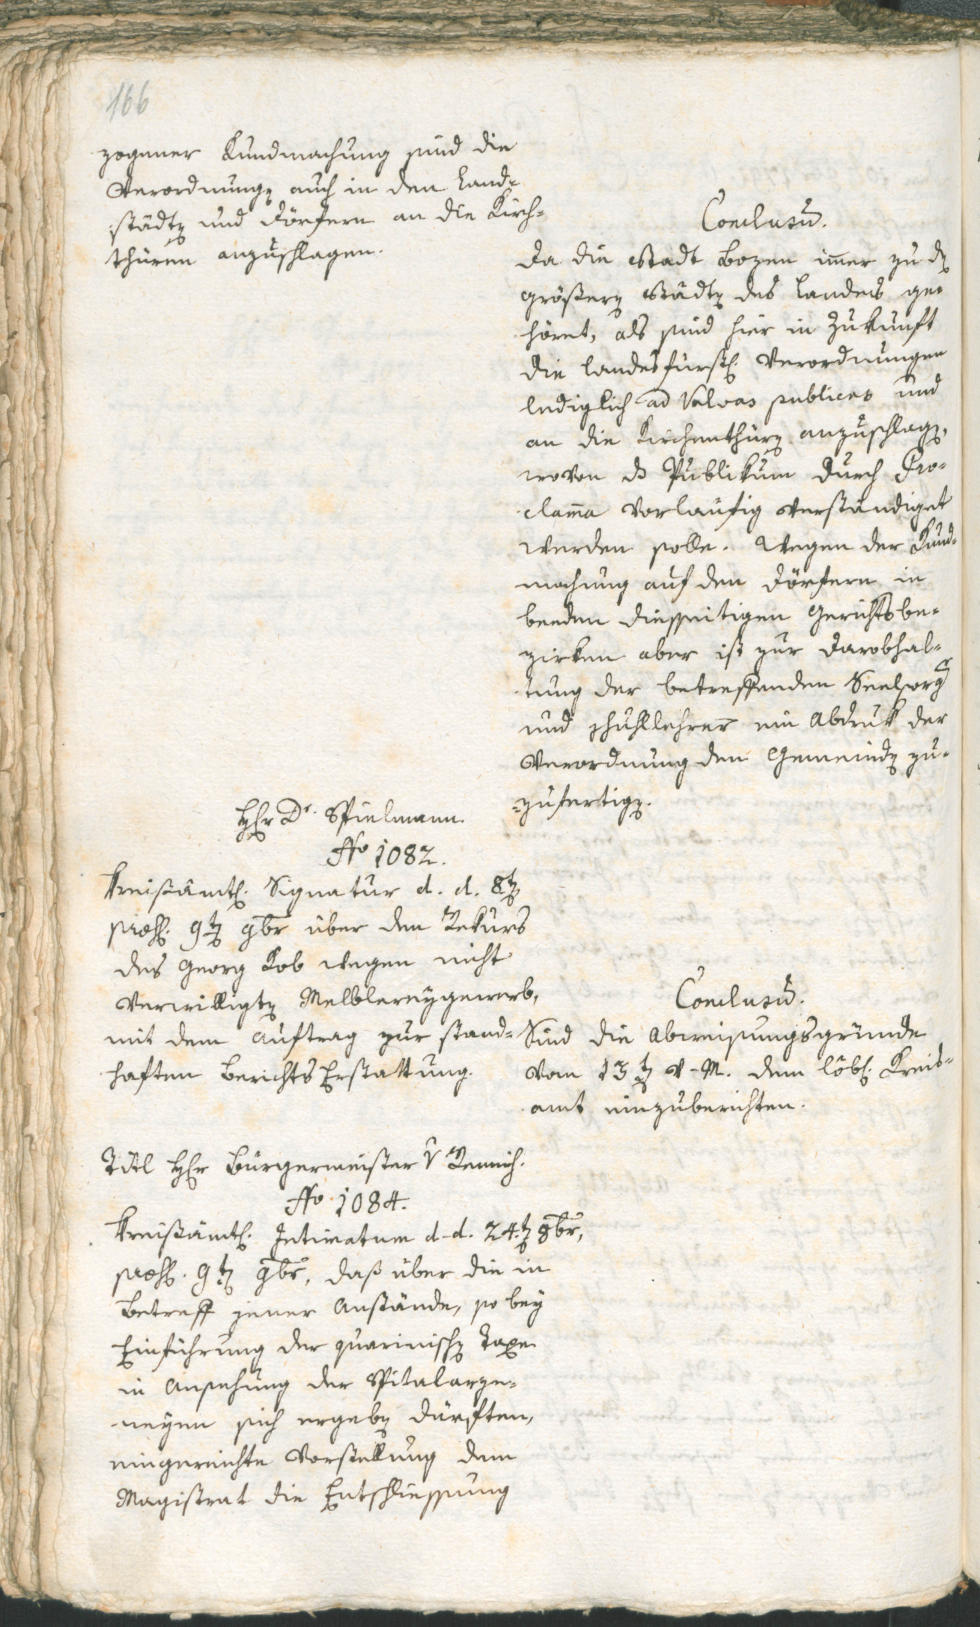 166
zogener Kundmachung sind die
Verordnungen auch in den Land-
städten und Dörfern an die Kirch-
thüren anzuschlagen.
Conclusum.
Da die Stadt Bozen immer zu den
größeren Städten des Landes ge-
höret, als sind hier in Zukunft
die landesfürstl. Verordnungen
lediglich ad Valvas publicas und
an die Kirchenthüren anzuschlagen,
wovon das Publikum durch Pro-
clama vorläufig verständiget
werden solle. Wegen der Kund-
machung auf den Dörfern in
beeden diesseitigen Gerichtsbe-
zirken aber ist zur Darobhal-
tung der betreffenden Seelsorger
und Schullehrer ein Abdruk der
Verordnung den Gemeinden zu-
zufertigen.
Hr Dr. Spielmann.
No 1082.
Kreisämtl. Signatur d. d. 8ten
præs. 9ten 9br über den Rekurs
des Georg Kob wegen nicht
verwilligten Melblereygewerb,
mit dem Auftrag zur stand-
haften Berichts Erstattung.
Conclusum.
Sind die Abweisungsgründe
vom 13ten v. M. dem löbl. Kreis-
amt einzuberichten.
Titl Hr Bürgermeister v Remich.
No 1084.
Kreisämtl. Intimatum d. d. 24ten 8br,
præs. 9ten 9br, daß über die in
Betreff jener Anstände, so bey
Einführung der quarinischen Taxe
in Ansehung der Spitalarze-
neyen sich ergeben dürften,
eingereichte Vorstellung dem
Magistrat die Entschliessung